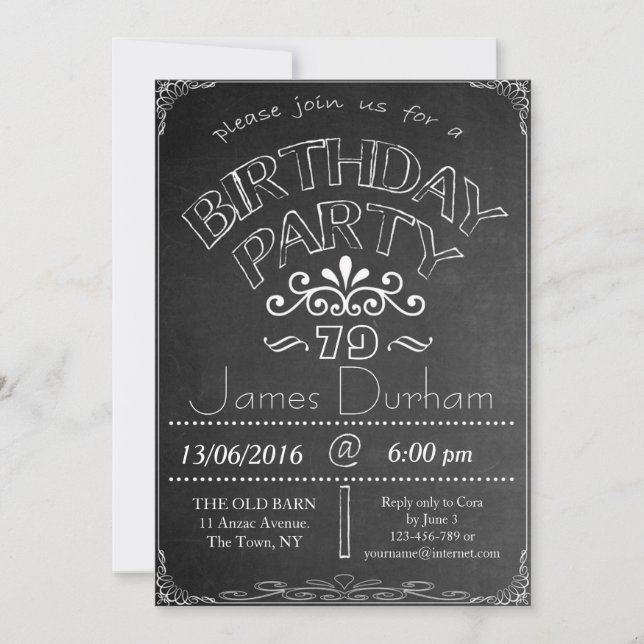 please join us for a
BIRTHDAY
PARTY
79
James Durham
13/06/2016 @ 6:00 pm
THE OLD BARN
11 Anzac Avenue.
The Town, NY
Reply only to Cora
by June 3
123-456-789 or
yourname@internet.com